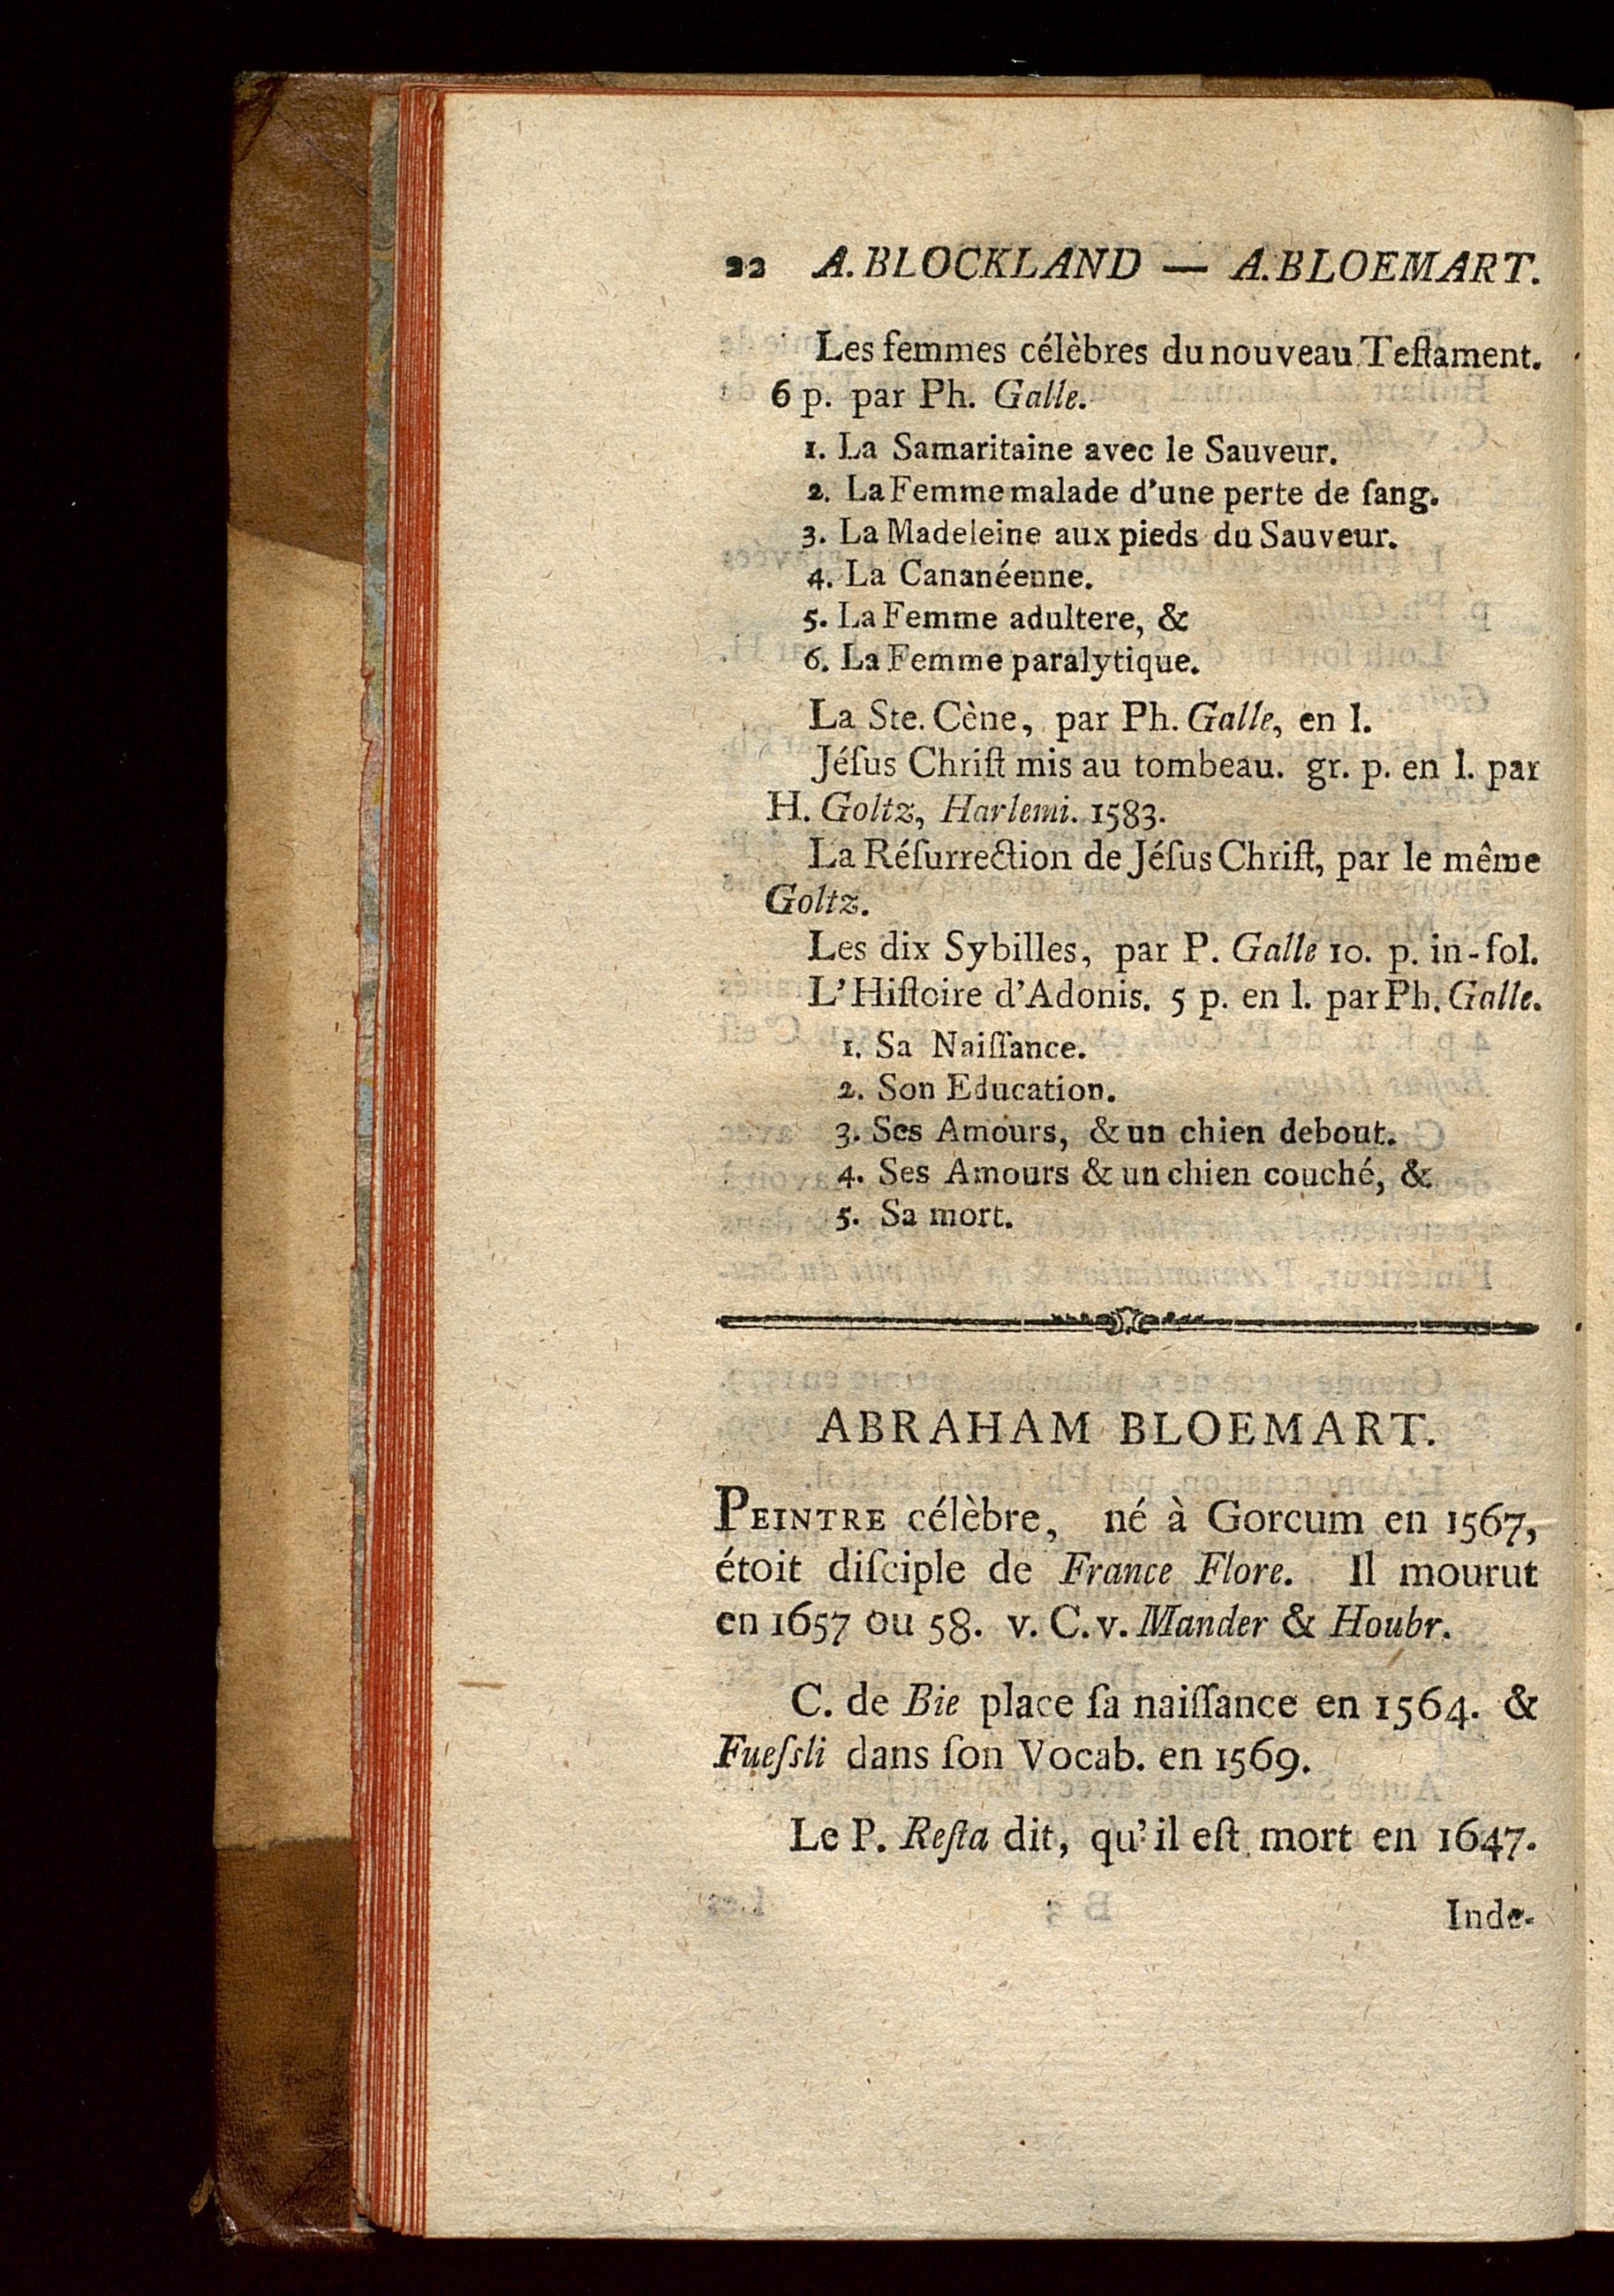 22 A. BLOCKLAND — A. BLOEMART.
Les femmes célèbres du nouveau Teſtament.
6 p. par Ph. Galle.
1. La Samaritaine avec le Sauveur.
2. La Femme malade d'une perte de ſang.
3. La Madeleine aux pieds du Sauveur.
4. La Cananéenne.
5. La Femme adultere, &
6. La Femme paralytique.
La Ste. Cène, par Ph. Galle, en l.
Jéſus Chriſt mis au tombeau. gr. p. en l. par
H. Goltz, Harlemi. 1583.
La Réſurrection de Jéſus Chriſt, par le même
Goltz.
Les dix Sybilles, par P. Galle 10. p. in-fol.
L'Hiſtoire d'Adonis. 5 p. en l. par Ph. Galle.
1. Sa Naiſſance.
2. Son Education.
3. Ses Amours, & un chien debout.
4. Ses Amours & un chien couché, &
5. Sa mort.
ABRAHAM BLOEMART.
PEINTRE célèbre, né à Gorcum en 1567,
étoit diſciple de France Flore. Il mourut
en 1657 ou 58. v. C. v. Mander & Houbr.
C. de Bie place ſa naiſſance en 1564. &
Fueſsli dans ſon Vocab. en 1569.
Le P. Reſta dit, qu'il eſt mort en 1647.
Inde-